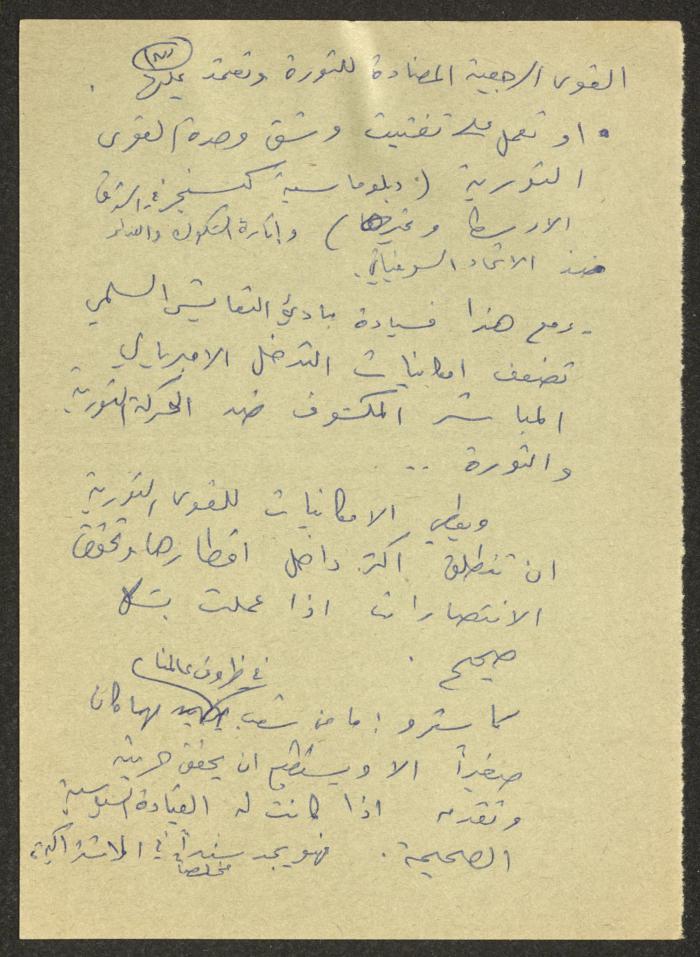 القوى الرجعية المضادة للثورة وتعتمد عليها .
• او تعمل على تفتيت وشق وحدة القوى
الثورية (دبلوماسية كسنجر في الشرق
الاوسط وغيرها) واثارة الشكوك والعداء
ضد الاتحاد السوفياتي .
- ومع هذا فسيادة مبادئ التعايش السلمي
تضعف امكانيات التدخل الامبريالي
المباشر المكشوف ضد الحركة الثورية
والثورة ..
ويعطي الامكانيات للقوى الثورية
ان تنطلق اكثر داخل اقطارها وتحقق
الانتصارات اذا عملت بشكل
صحيح .
في ظروف عالمنا
كاسترو : ما من شعب مهما كان
صغيراً الا ويستطيع ان يحقق حريته
وتقدمه اذا كانت له القيادة السياسية
الصحيحة . فهو يجد سنداً في الاشتراكية
مخلصاً